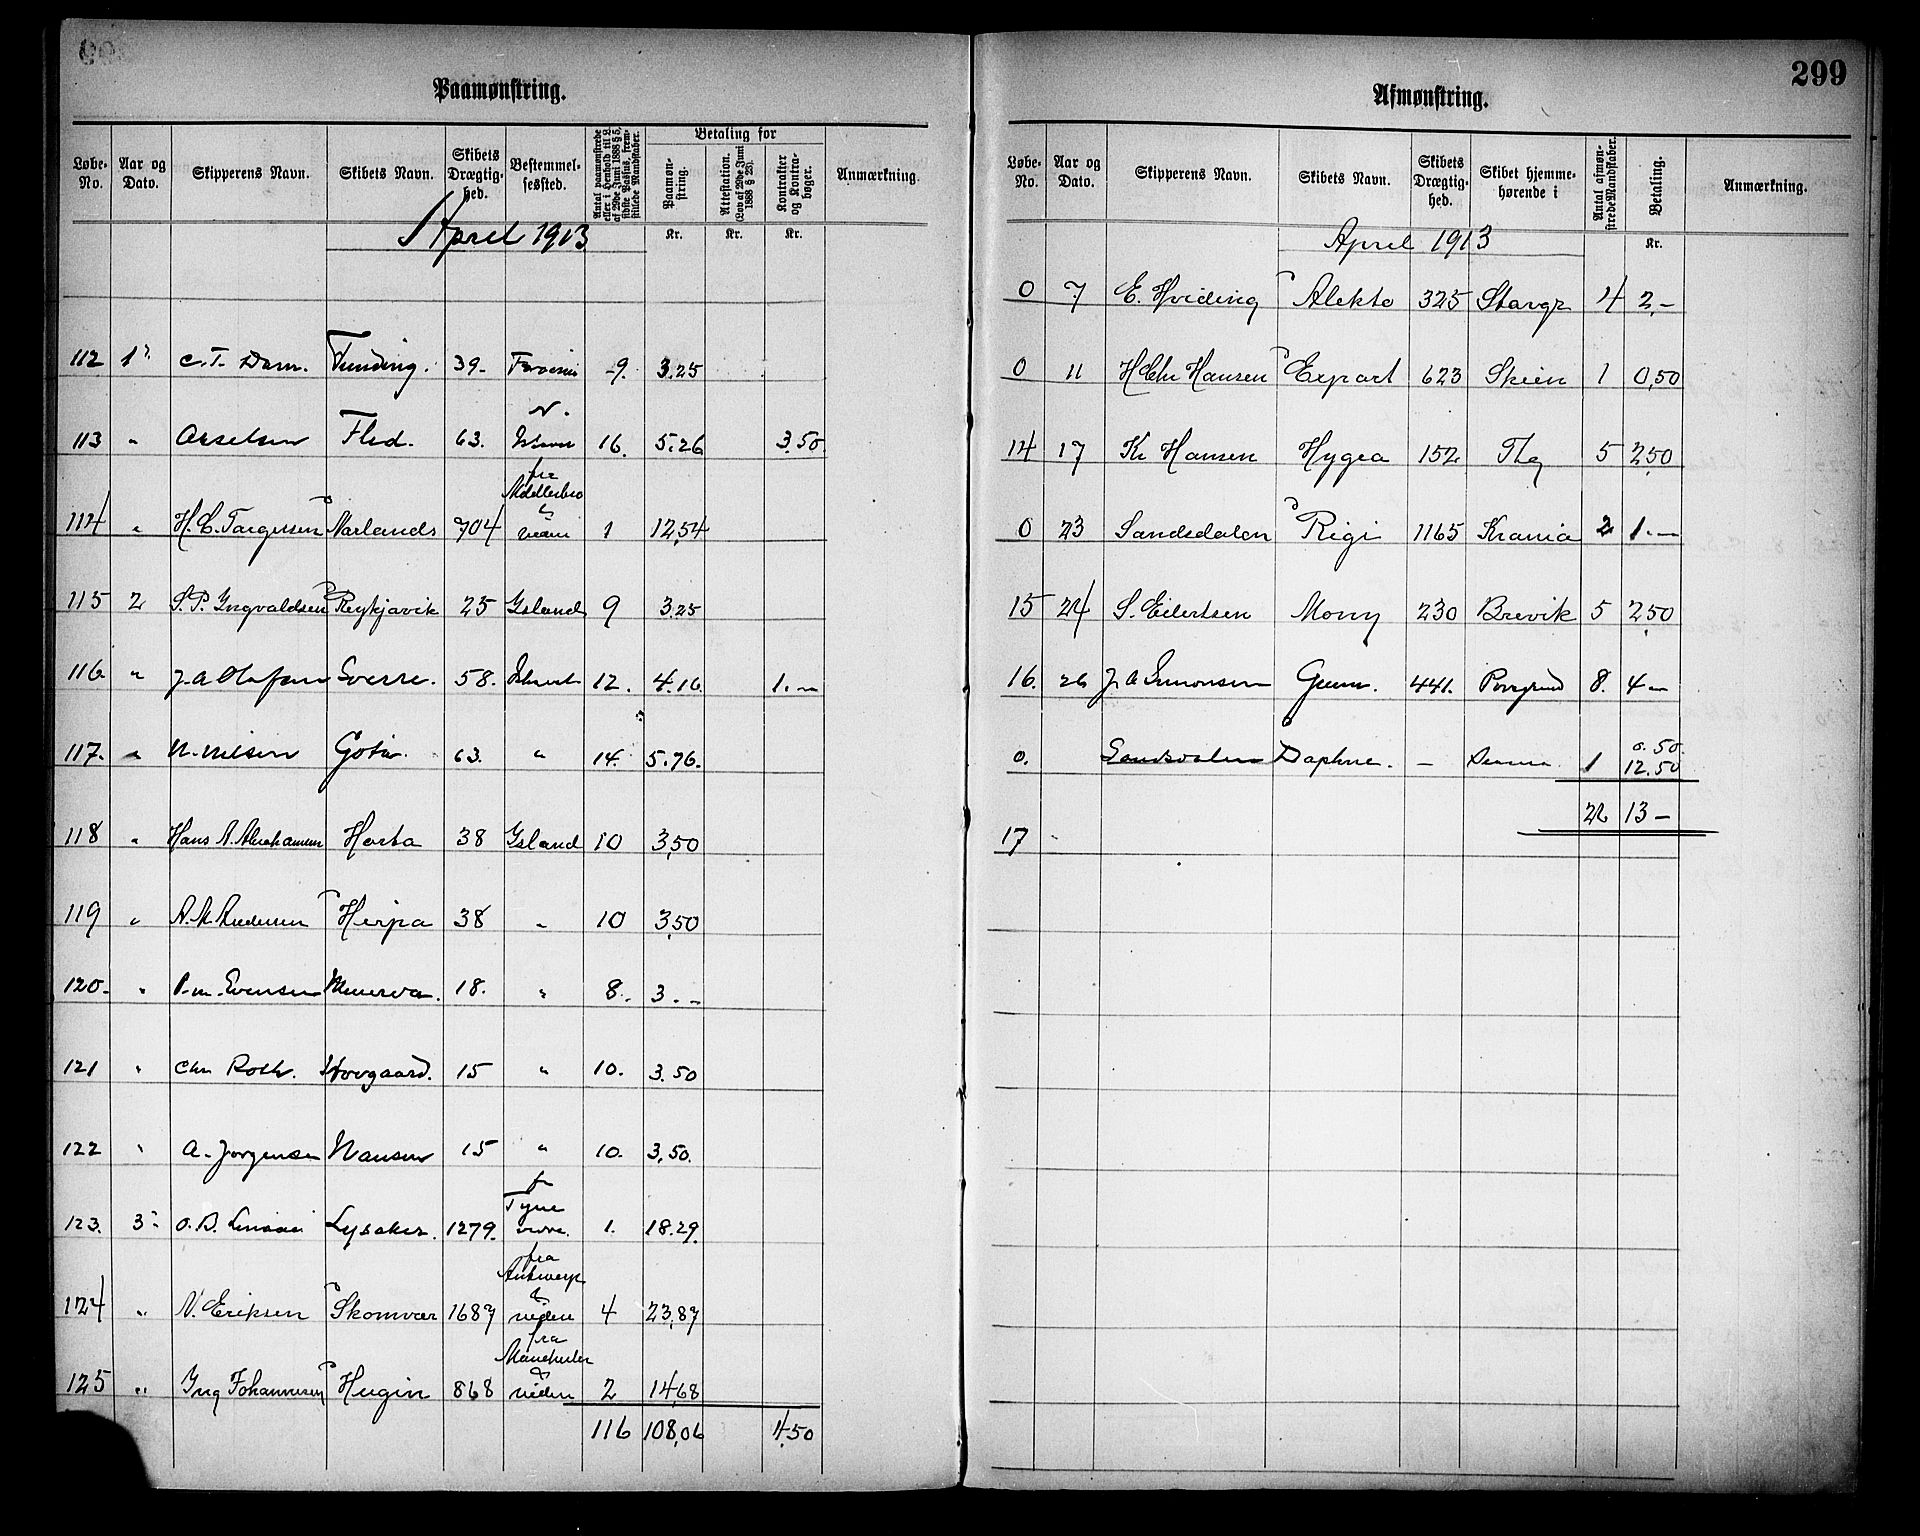 299
Paamønstring.
Løbe-No. Aar og Dato. Skipperens Navn. Skibets Navn. Skibets Drægtighed. Bestemmelsessted. Antal paamønstrede eller i Henhold til L. af 29de Juni 1888 § 5, sidste Passus, fremstillede Mandskaber. Betaling for Paamønstring. Attestation. (Lov af 29de Juni 1888 § 23). Kontrakter og Kontrabøger. Anmærkning.
April 1913 Kr. Kr. Kr.
112 1 C. T. Dam. Funding. 39. 9. 3.25
N.
113 " Flid. 63. 16. 5.26 3.50
fra
114 " H. C. Targessen Narlands 704 1 12,54
115 2 S. P. Yngvaldsen Reykjavik 25 Ysland 9 3.25
116 " J. A. Olafsen Sverre. 58. 12. 4.16 1.—
117. " N. Nilsen Gota. 63. " 14. 5.76.
118 " Hans A. Abrahamsen Herta 38 Ysland 10 3,50
119 " A. M. Andersen Herpa 38 " 10 3,50
120. " P. M. Evensen Minerva. 18. " 8. 3.-
121 " Chr Roth. Hovgaard. 15 " 10. 3.50
122 " A. Jørgensen Nansen 15 " 10. 3,50.
Tyne
123. 3 O. B. Lysaker. 1279. 1. 18.29.
fra
Antwerp
124 " N. Eriksen Skomvær 1687 viden 4 23,87
fra
Manchester
125 " Ing Johannesen Hugin 868 viden 2 14,68
116 108,06 4,50
Afmønstring.
Løbe-No. Aar og Dato. Skipperens Navn. Skibets Navn. Skibets Drægtighed. Skibet hjemmehørende i Antal afmønstrede Mandskaber. Betaling. Anmærkning.
April 1913 Kr.
0 7 E. Hviding Alekto 325 Stavgr 4 2,-
0 11 H Chr Hansen Export 623 Skien 1 0,50
14 17 Kr Hansen Hygea 152 5 2,50
0 23 Sandsdalen Rigi 1165 Krania 2 1.—
15 24 S. Eilertsen Mony 230 Brevik 5 2,50
16. 26 J A Simonsen Gunn. 441. Porsgrund 8. 4 —
0. Sandsdalen Daphne. — 1 0.50.
12.50
22 13 —
17